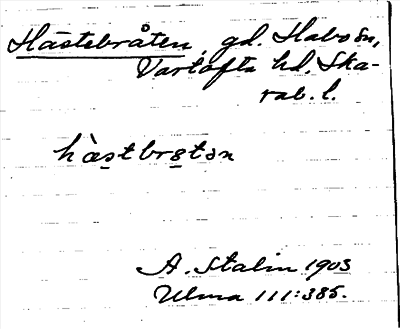 Hästebråten, gd. Habo sn,
Vartofta hd, Ska-
rab. l.
hàstbrgtən
A. Stalin 1903
Ulma 111:385.